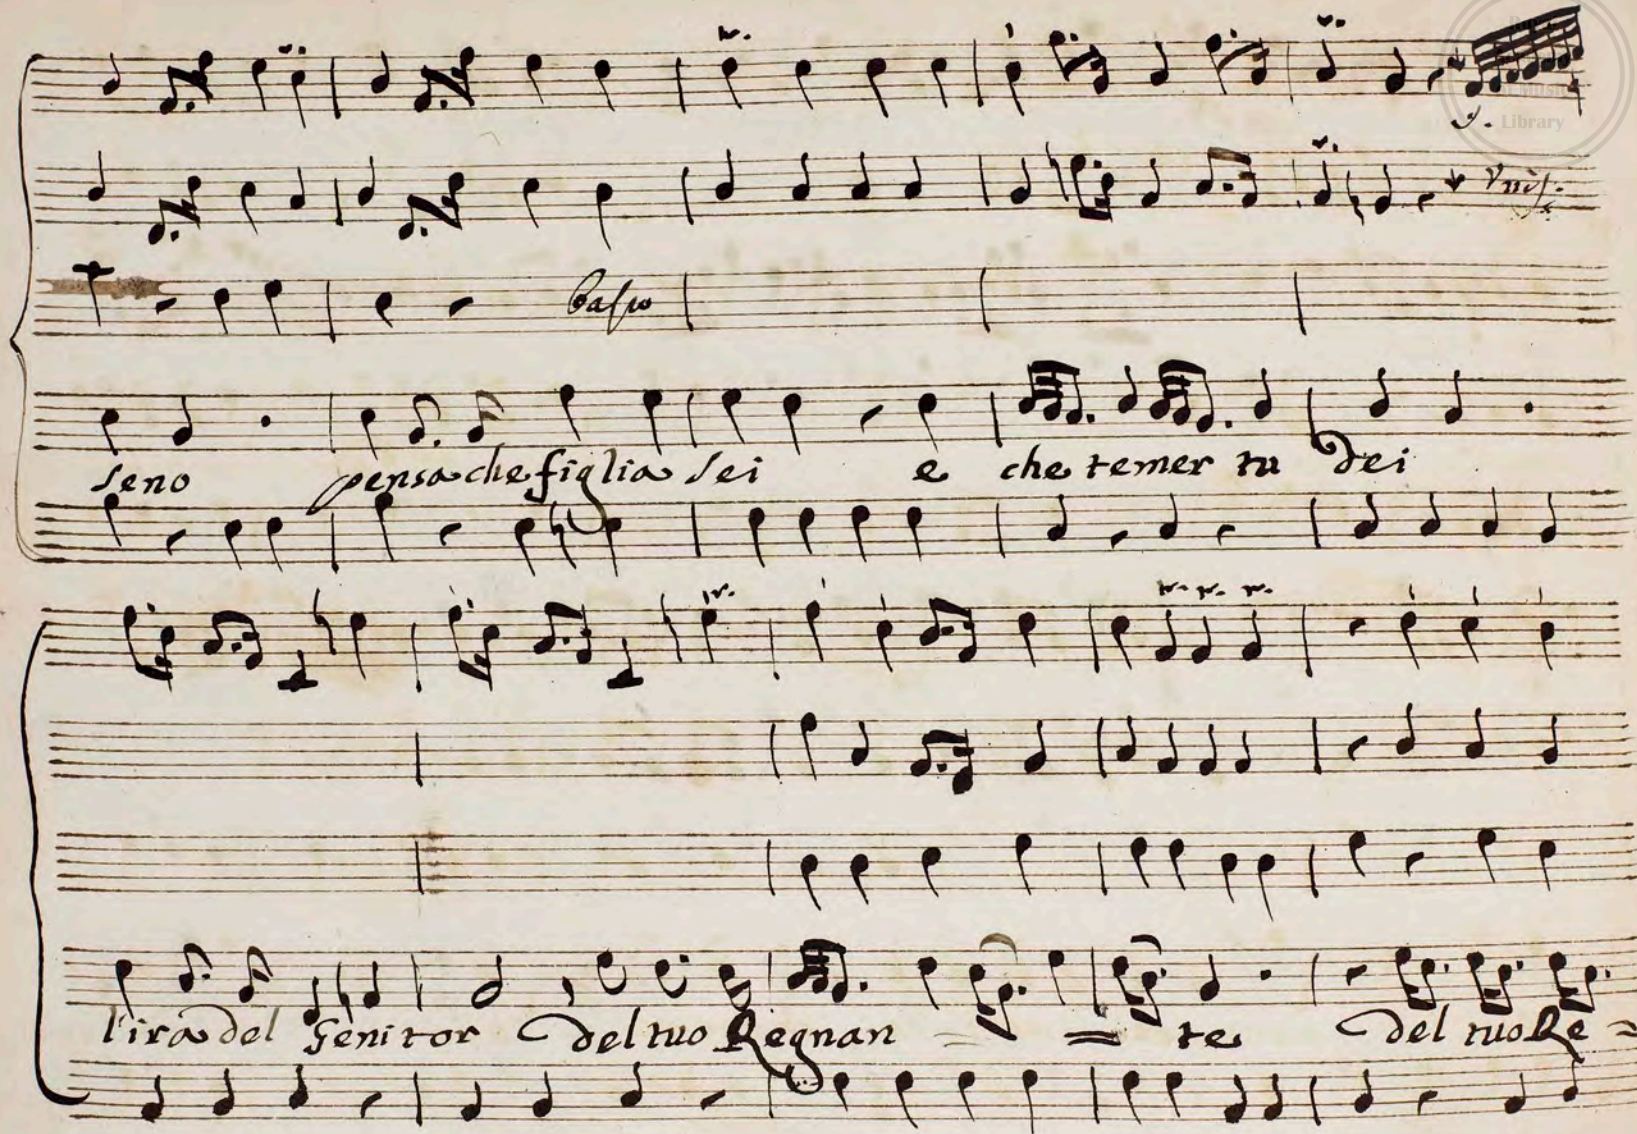 Library
Unis:
Basso
seno pensa che figlia sei e che temer tu dei
l'ira del Genitor del tuo Regnan = = te del tuo Re =